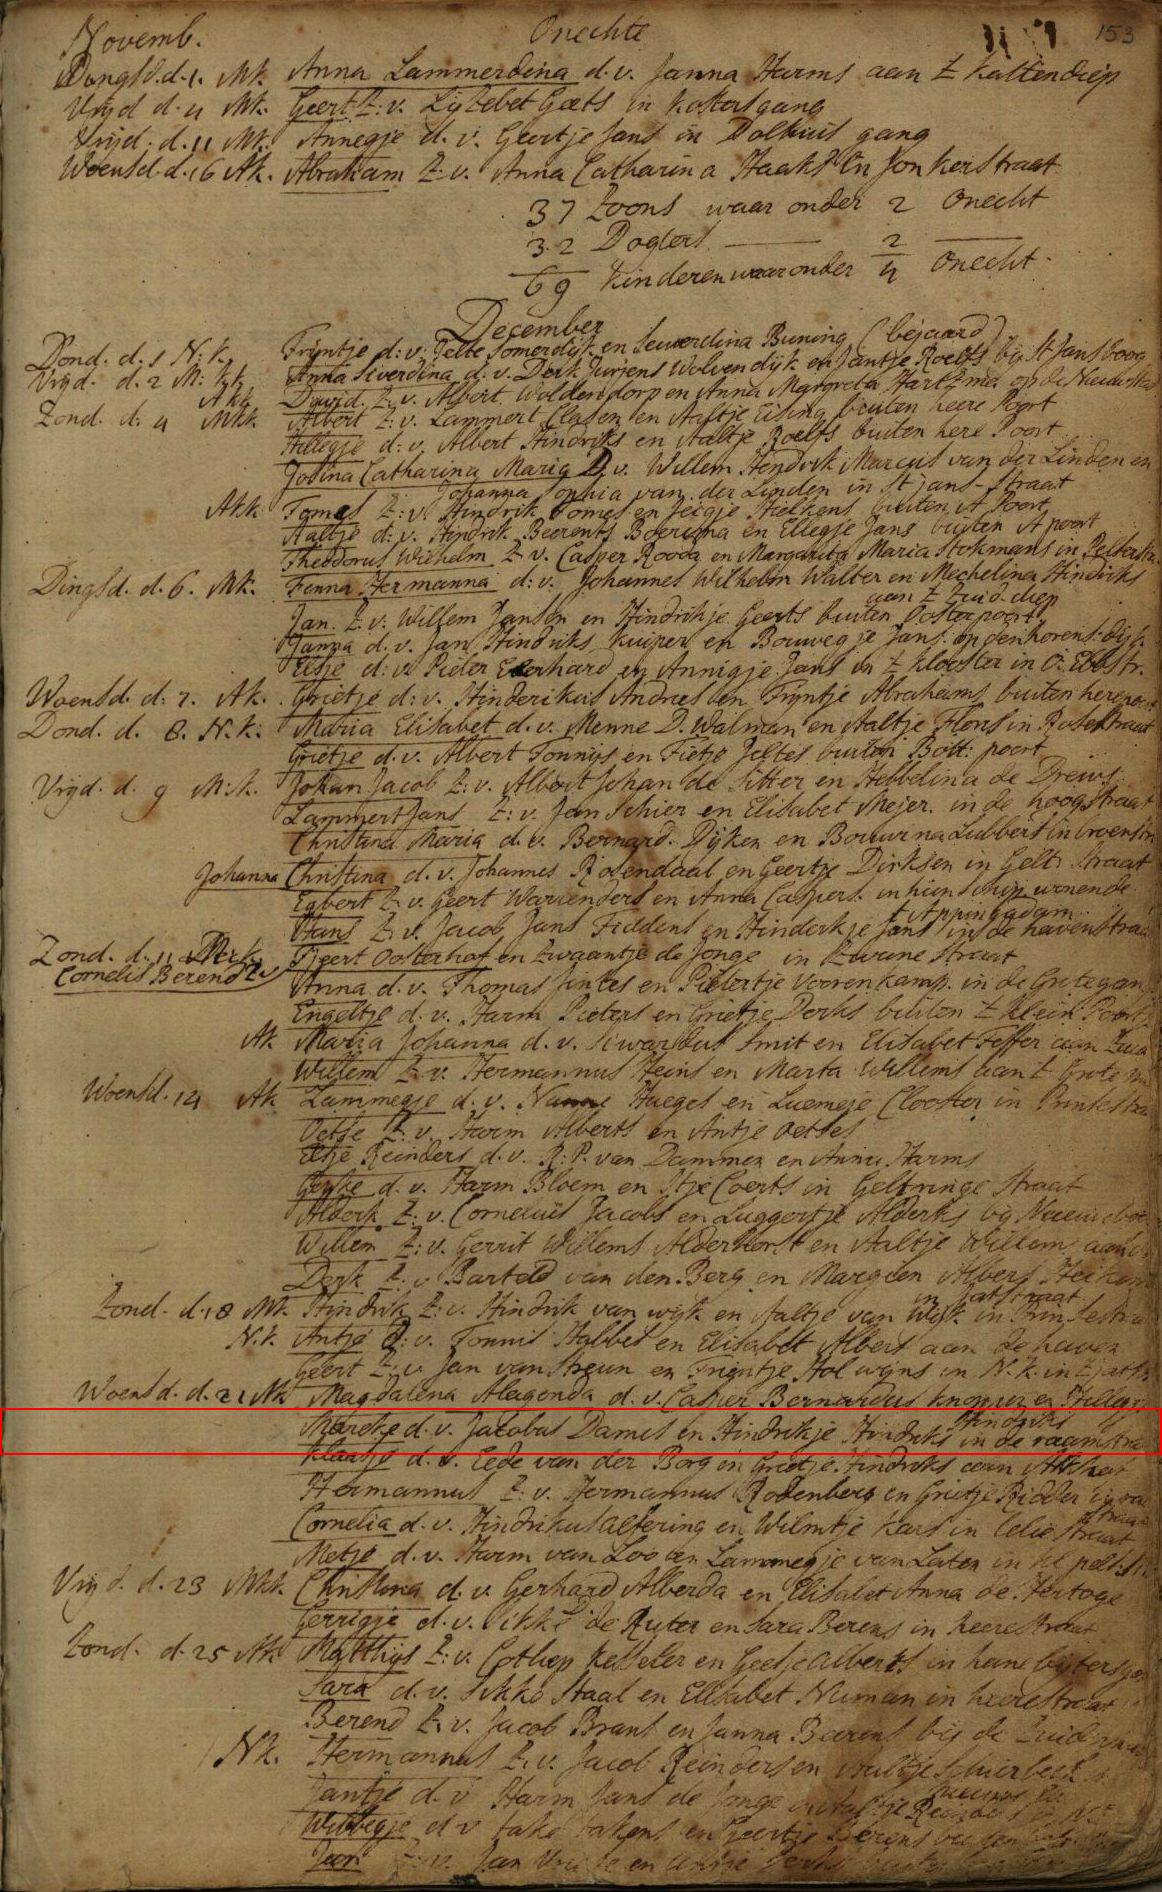 153
Novemb. Onechte
Dingsd. d. 1. Mk. Anna Lammerdina d. v. Janna Harms aan t Kattendiep
Vrijd d. 4 Mk. Geert Z. v. Lijzebet Gaets in kosters gang
Vrijd. d. 11 Mk. Annegje d. v. Geertje Jans in Dolhuis gang
Woensd. d. 16 Ak. Abraham Z. v. Anna Catharina Haaks in Jonkerstraat
37 Zoons waar onder 2 Onecht
32 Dogters — 2 —
69 kinderen waar onder 4 Onecht.
December
Dond. d. 1 N: k. Trijntje d: v: Jelte Somerdijk en Sewerdina Buning (bejaard)
Vrijd. d. 2 M: k. Anna Siverdina d. v. Derk Jurjens Wolvendijk en Jantje Roelfs bij St Jans boog
Akk. David Z. v. Albert Woldendorp en Anna Margreta Hartzma op de Nieuwstad
Zond. d. 4 Mkk. Albert Z: v. Lammert Clasen en Aaltje Eising buiten heere Poort
Hillegje d: v. Albert Hindriks en Aaltje Roelfs buiten here Poort
Josina Catharina Maria D. v. Willem Hendrik Marcus van der Linden en
Johanna Sophia van der Linden in St Jans-straat
Akk. Tomas Z: v. Hindrik Tomes en Jeigje Hielkens buiten A Poort
Aaltje d: v. Hindrik Beerents Boersma en Ellegje Jans buiten A poort
Theodorus Wilhelm Z. v. Casper Rooda en Margarita Maria Stokmans in Pelsterstr.
Dingsd. d. 6. Mk. Fenna Hermanna d: v. Johannes Wilhelm Walter en Mechelina Hindriks
aan t Zuid. diep
Jan. Z. v: Willem Jansen en Hindrikje Geerts buiten Oosterpoort
Janna d. v. Jan Hindriks Kuiper en Bouwegje Jans. op den horens-dijk
Elsje d: v. Pieter Eberhard en Annigje Jans in t klooster in O: Ebbstr.
Woensd. d: 7. Ak. Grietje d: v. Hinderikus Andries en Trijntje Abrahams buiten herepoort
Dond. d. 8. N. k: Maria Elisabet d. v. Menne D. Walman en Aaltje Floris in Rosestraat
Grietje d. v. Albert Tonnijs en Fietje Jeltes buiten Bott: poort
Vrijd. d. 9 M: k. Johan Jacob Z: v. Albert Johan de Sitter en Hebbelina de Drews
Lammert Jans Z: v. Jan Schier en Elisabet Meijer. in de hoogstraat
Christina Maria d. v. Bernard. Dijken en Bouwina Lubbers in
Johanna Christina d. v. Johannes Rosendaal en Geertje Dirksen in Gelk. straat
Egbert Z. v. Geert Warrenders en Anna Caspers. in hun schip wonende
t Appingadam
Hans Z: v. Jacob Jans Fiddens en Hinderkje Jans in de havenstraa
Zond. d. 11 Mk. Geert Oosterhof en Zwaantje de Jonge in Zwane Straat
Cornelis Berend Z v
Anna d. v. Thomas Jintes en Pietertje Voorenkamp. in de Grotegan
Engeltje d. v. Harm Pieters en Grietje Derks buiten t klein Poort
Ak. Maria Johanna d. v. Siwardus Smit en Elisabet Feffer aan
Willem Z v. Hermannus Heins en Marta Willems aan t Grote
Woensd. 14 Ak. Lammegje d: v. Nanne Hueges en Luemeze Clooster in Prinsestra
Oetse Z: v. Harm Alberts en Antje Oetses
Eltje Reinders d. v. R: P. van Dammen en Anna Harms
Geeske d. v. Harm Bloem en Itje Coerts in Geltringe Straat
Alderk. Z: v. Cornelius Jacobs en Luggertje Alderks bij
Willem Z: v. Gerrit Willems Alderhorst en Aaltje Willem aan
Derk Z. v Barteld van den Berg en Margien Albers Heikens
in Jatstraat
Zond. d. 18 Mk. Hindrik Z: v. Hindrik van wijk en Aaltje van Wijk in Prinsestra
N. k. Antje d: v. Tonnis Habbes en Elisabet Albers aan de haven
Geert Z: v. Jan van Streun en Trientje Holwijns in N. k. in
Woensd. d. 21 Nk Magdalena Alegonda d. v. Casper Bernardus en
Hindriks
Mareke d. v. Jacobus Dames en Hindrikje Hindriks in de raamstra
Klaasje d. v. Eede van der Borg en Grietje Hindriks aan
Hermannus Z. v. Hermannus Rodenberg en Grietje Ridder
straat
Cornelia d. v. Hindrikus Alfering en Wilmtje Kars in lelie straat
Metje d. v. Harm van Loo en Lammegje van Laten in
Vrijd. d. 23 Mkk. Christina d. v. Gerhard Alberda en Elisabet Anna de Hertoge
Gerrigje d. v. Sikke de Ruter en Sara Berens in heerestraat
Zond. d. 25 Ak. Matthijs Z: v. Gotliep Kesseler en Geesje Alberts in
Sara d. v. Sikko Staal en Elisabet Numan in heerestraat
Berend Z. v. Jacob Brans en Janna Beerens bij de
Nk. Hermannus Z. v. Jacob Reinders en Aaltje Schierbeek
Jantje d. v Harm Jans de Jonge en Aaltje
Wibbegje d v take takens en Geertje Berens
Jan Z. v. Jan en